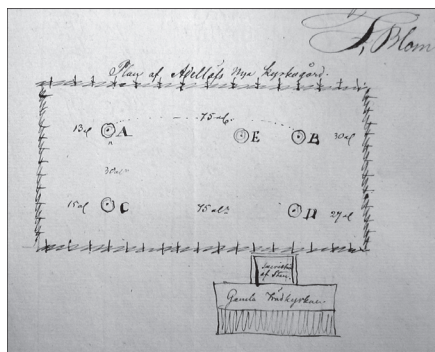 F. Blom
Plan af Adellöfs nya kyrkogård.
75 al.
13 al A E B 30 al
30 al
15 al C 75 al D 27 al
Sacristia
af Sten.
Gamla Trädkyrkan.